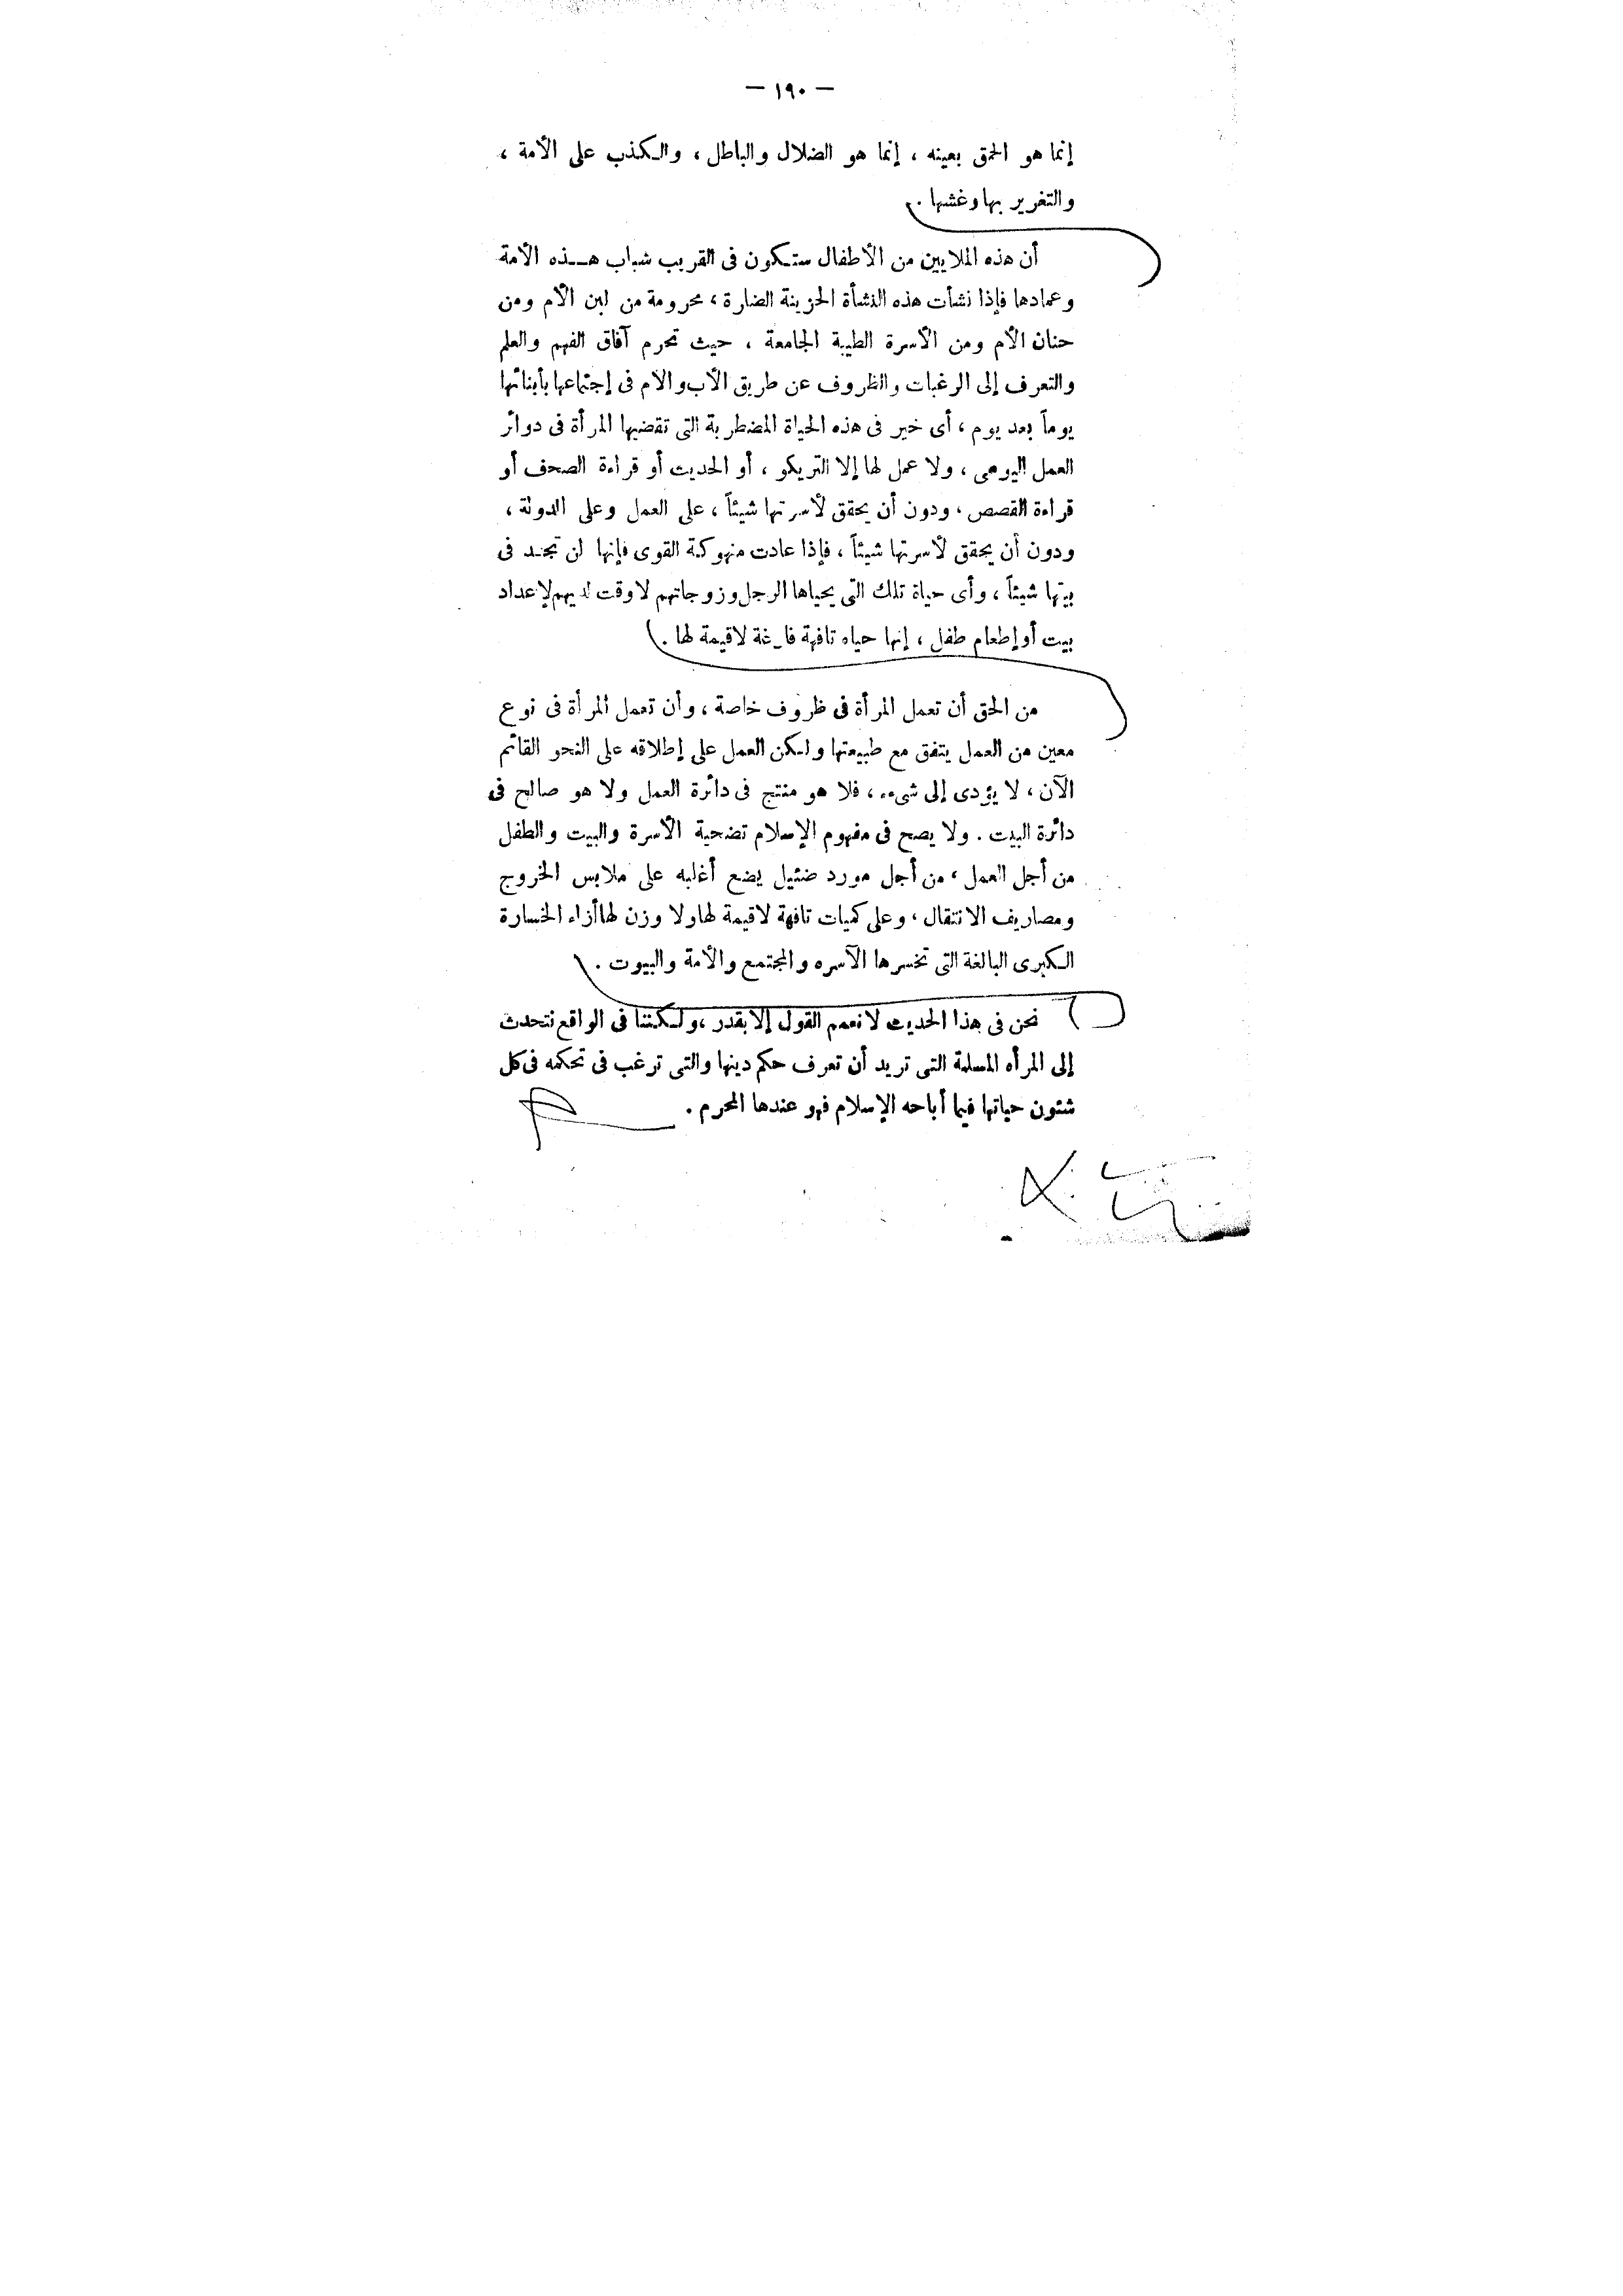 — ١٩٠ —
إنما هو الحمق بعينه ، إنما هو الضلال والباطل ، والكذب على الأمة ،
والتغرير بها وغشها .
أن هذه الملايين من الأطفال ستكون فى القريب شباب هـذه الأمة
وعمادها فإذا نشأت هذه النشأة الحزينة الضارة ، محرومة من لبن الأم ومن
حنان الأم ومن الأسرة الطيبة الجامعة ، حيث تحرم آفاق الفهم والعلم
والتعرف إلى الرغبات والظروف عن طريق الأب والأم فى إجتماعها بأبنائها
يوماً بعد يوم ، أى خير فى هذه الحياة المضطربة التى تقضيها المرأة فى دوائر
العمل اليومى ، ولا عمل لها إلا التريكو ، أو الحديث أو قراءة الصحف أو
قراءة القصص ، ودون أن يحقق لأسرتها شيئاً ، على العمل وعلى الدولة ،
ودون أن يحقق لأسرتها شيئاً ، فإذا عادت منهوكة القوى فإنها لن تجد فى
بيتها شيئاً ، وأى حياة تلك التى يحياها الرجل وزوجاتهم لا وقت لديهم لإعداد
بيت أو إطعام طفل ، إنها حياه تافهة فارغة لا قيمة لها .
من الحق أن تعمل المرأة فى ظروف خاصة ، وأن تعمل المرأة فى نوع
معين من العمل يتفق مع طبيعتها ولكن العمل على إطلاقه على النحو القائم
الآن ، لا يؤدى إلى شىء ، فلا هو منتج فى دائرة العمل ولا هو صالح فى
دائرة البيت . ولا يصح فى مفهوم الإسلام تضحية الأسرة والبيت والطفل
من أجل العمل ، من أجل مورد ضئيل يضع أغلبه على ملابس الخروج
ومصاريف الانتقال ، وعلى كميات تافهة لا قيمة لها ولا وزن لها أزاء الخسارة
الكبرى البالغة التى تخسرها الآسره والمجتمع والأمة والبيوت .
نحن فى هذا الحديث لا نعمم القول إلا بقدر ، ولكننا فى الواقع نتحدث
إلى المرأه المسلمة التى تريد أن تعرف حكم دينها والتى ترغب فى تحكمه فى كل
شئون حياتها فيما أباحه الإسلام فهو عندها المحرم .